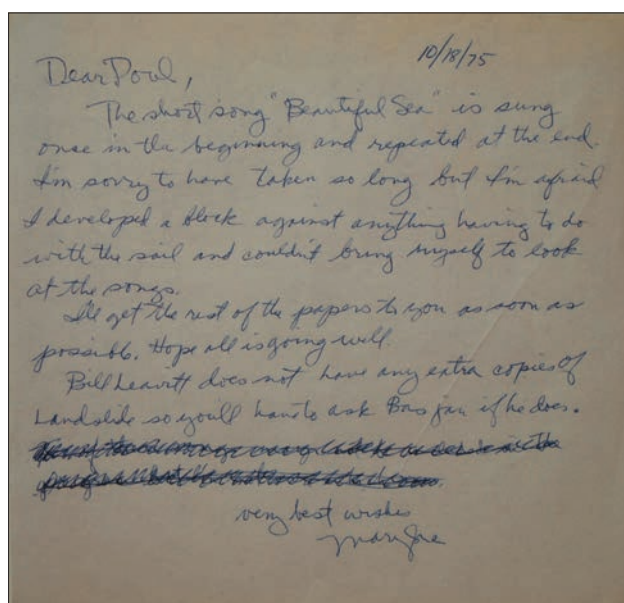 10/18/75
Dear Poul,
The short song "Beautiful Sea" is sung
once in the beginning and repeated at the end.
I'm sorry to have taken so long but I'm afraid
I developed a block against anything having to do
with the sail and couldn't bring myself to look
at the songs.
I'll get the rest of the papers to you as soon as
possible. Hope all is going well.
Bill Leavitt does not have any extra copies of
Landslide so you'll have to ask Bas Jan if he does.
very best wishes
Mary Sue